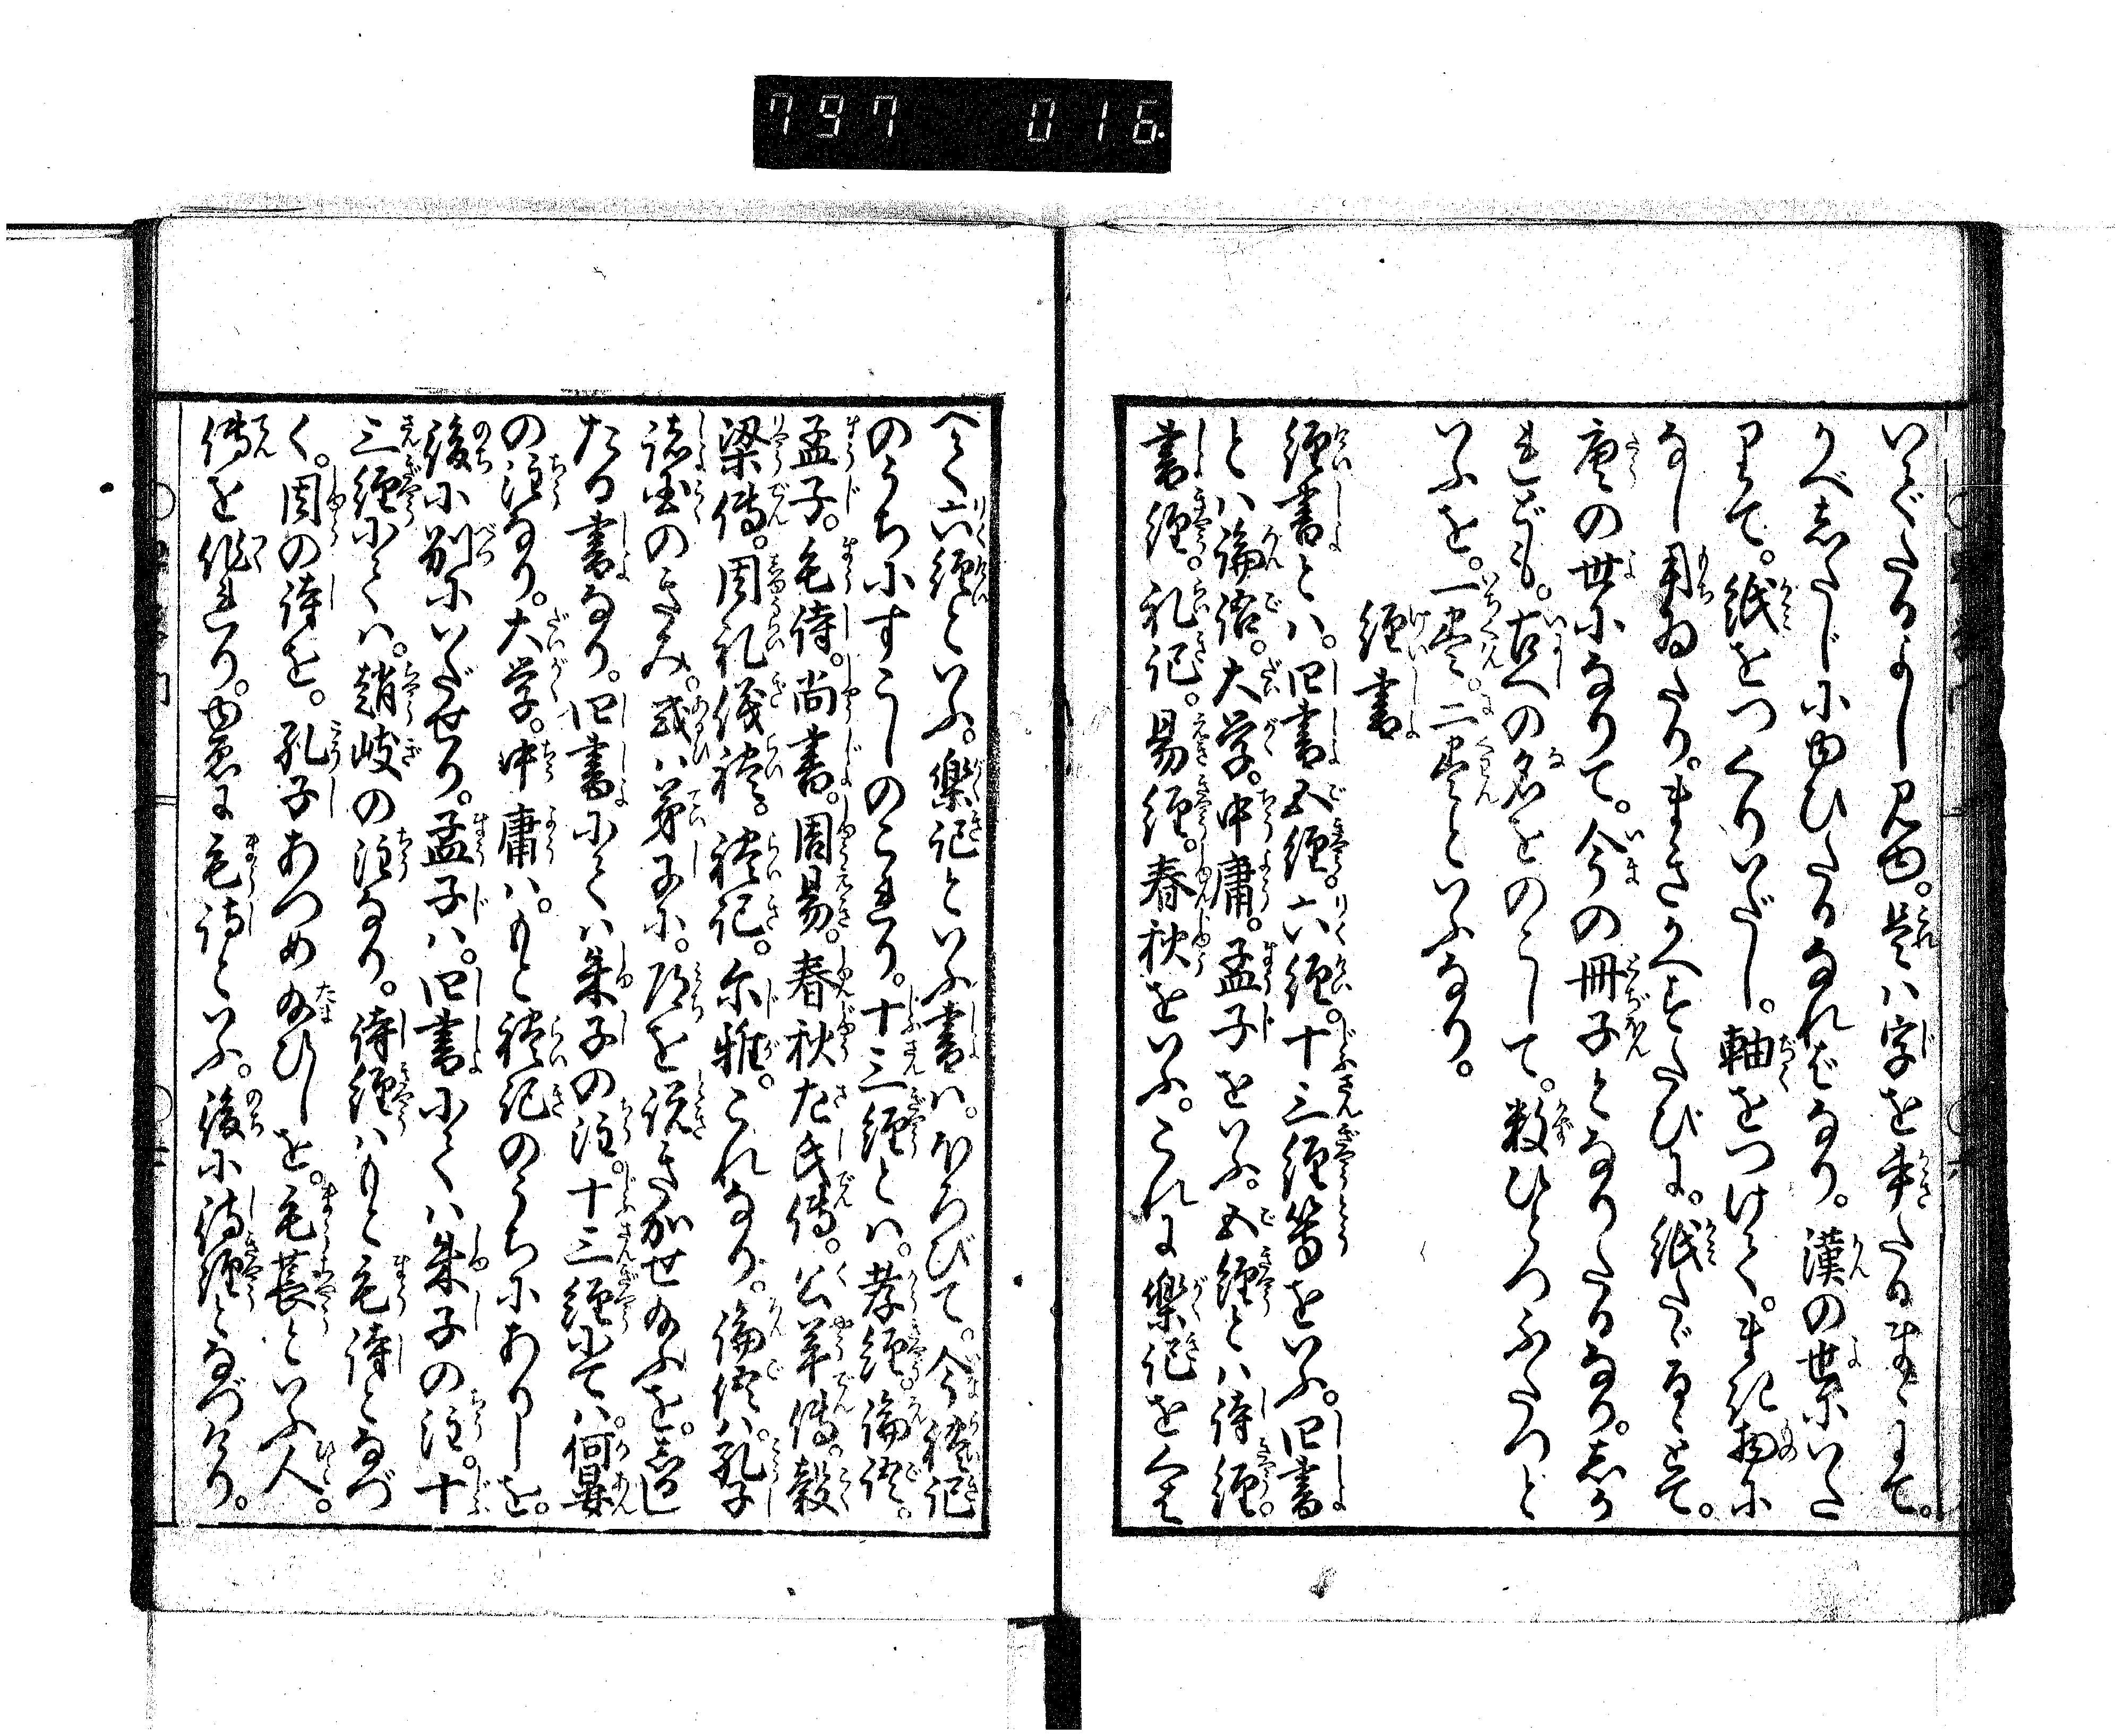 797 016
いでたるよし見ゆ。是は字を書たるまゝにて。
うべあんじにゆひたるなればなり。漢の世にいた
りて。紙をつくりいだし。軸をつけて。まき物に
なし用ゐたり。まきかへすたびに。紙たゞるゝとて。
唐の世になりて。今の冊子となりたるなり。しか
れども。古への名をのこして。数ひとつふたつと
いふを。一巻。二巻といふなり。
経書
経書とハ。四書五経。六経。十三経等をいふ。四書
とハ論語。大学。中庸。孟子をいふ。五経とハ詩経
書経。礼記。易経。春秋をいふ。これに楽記をくは
へて六経といふ。楽記といふ書ハ。ほろびて。今礼記
のうちにすこしのこれり。十三経とハ。孝経論語。
孟子。毛詩。尚書。周易。春秋左氏傳。公羊傳。穀
梁傳。周礼儀礼。礼記。尓雅。これなり。論語ハ。孔子
諸国のきみ。或ハ弟子に。道を説きかせ給ふを。しるし
たる書なり。四書にてハ朱子の注。十三経にてハ。何晏
の注なり。大学。中庸ハ。もと礼記のうちにありしを。
後に別にいだせり。孟子ハ。四書にてハ朱子の注。十
三経にてハ。趙岐の注なり。詩経ハもと毛詩となづ
く。周の詩を。孔子あつめ給ひしを。毛萇といふ人。
傳を作れり。ゆゑに毛詩といふ。後に詩経となづけり。